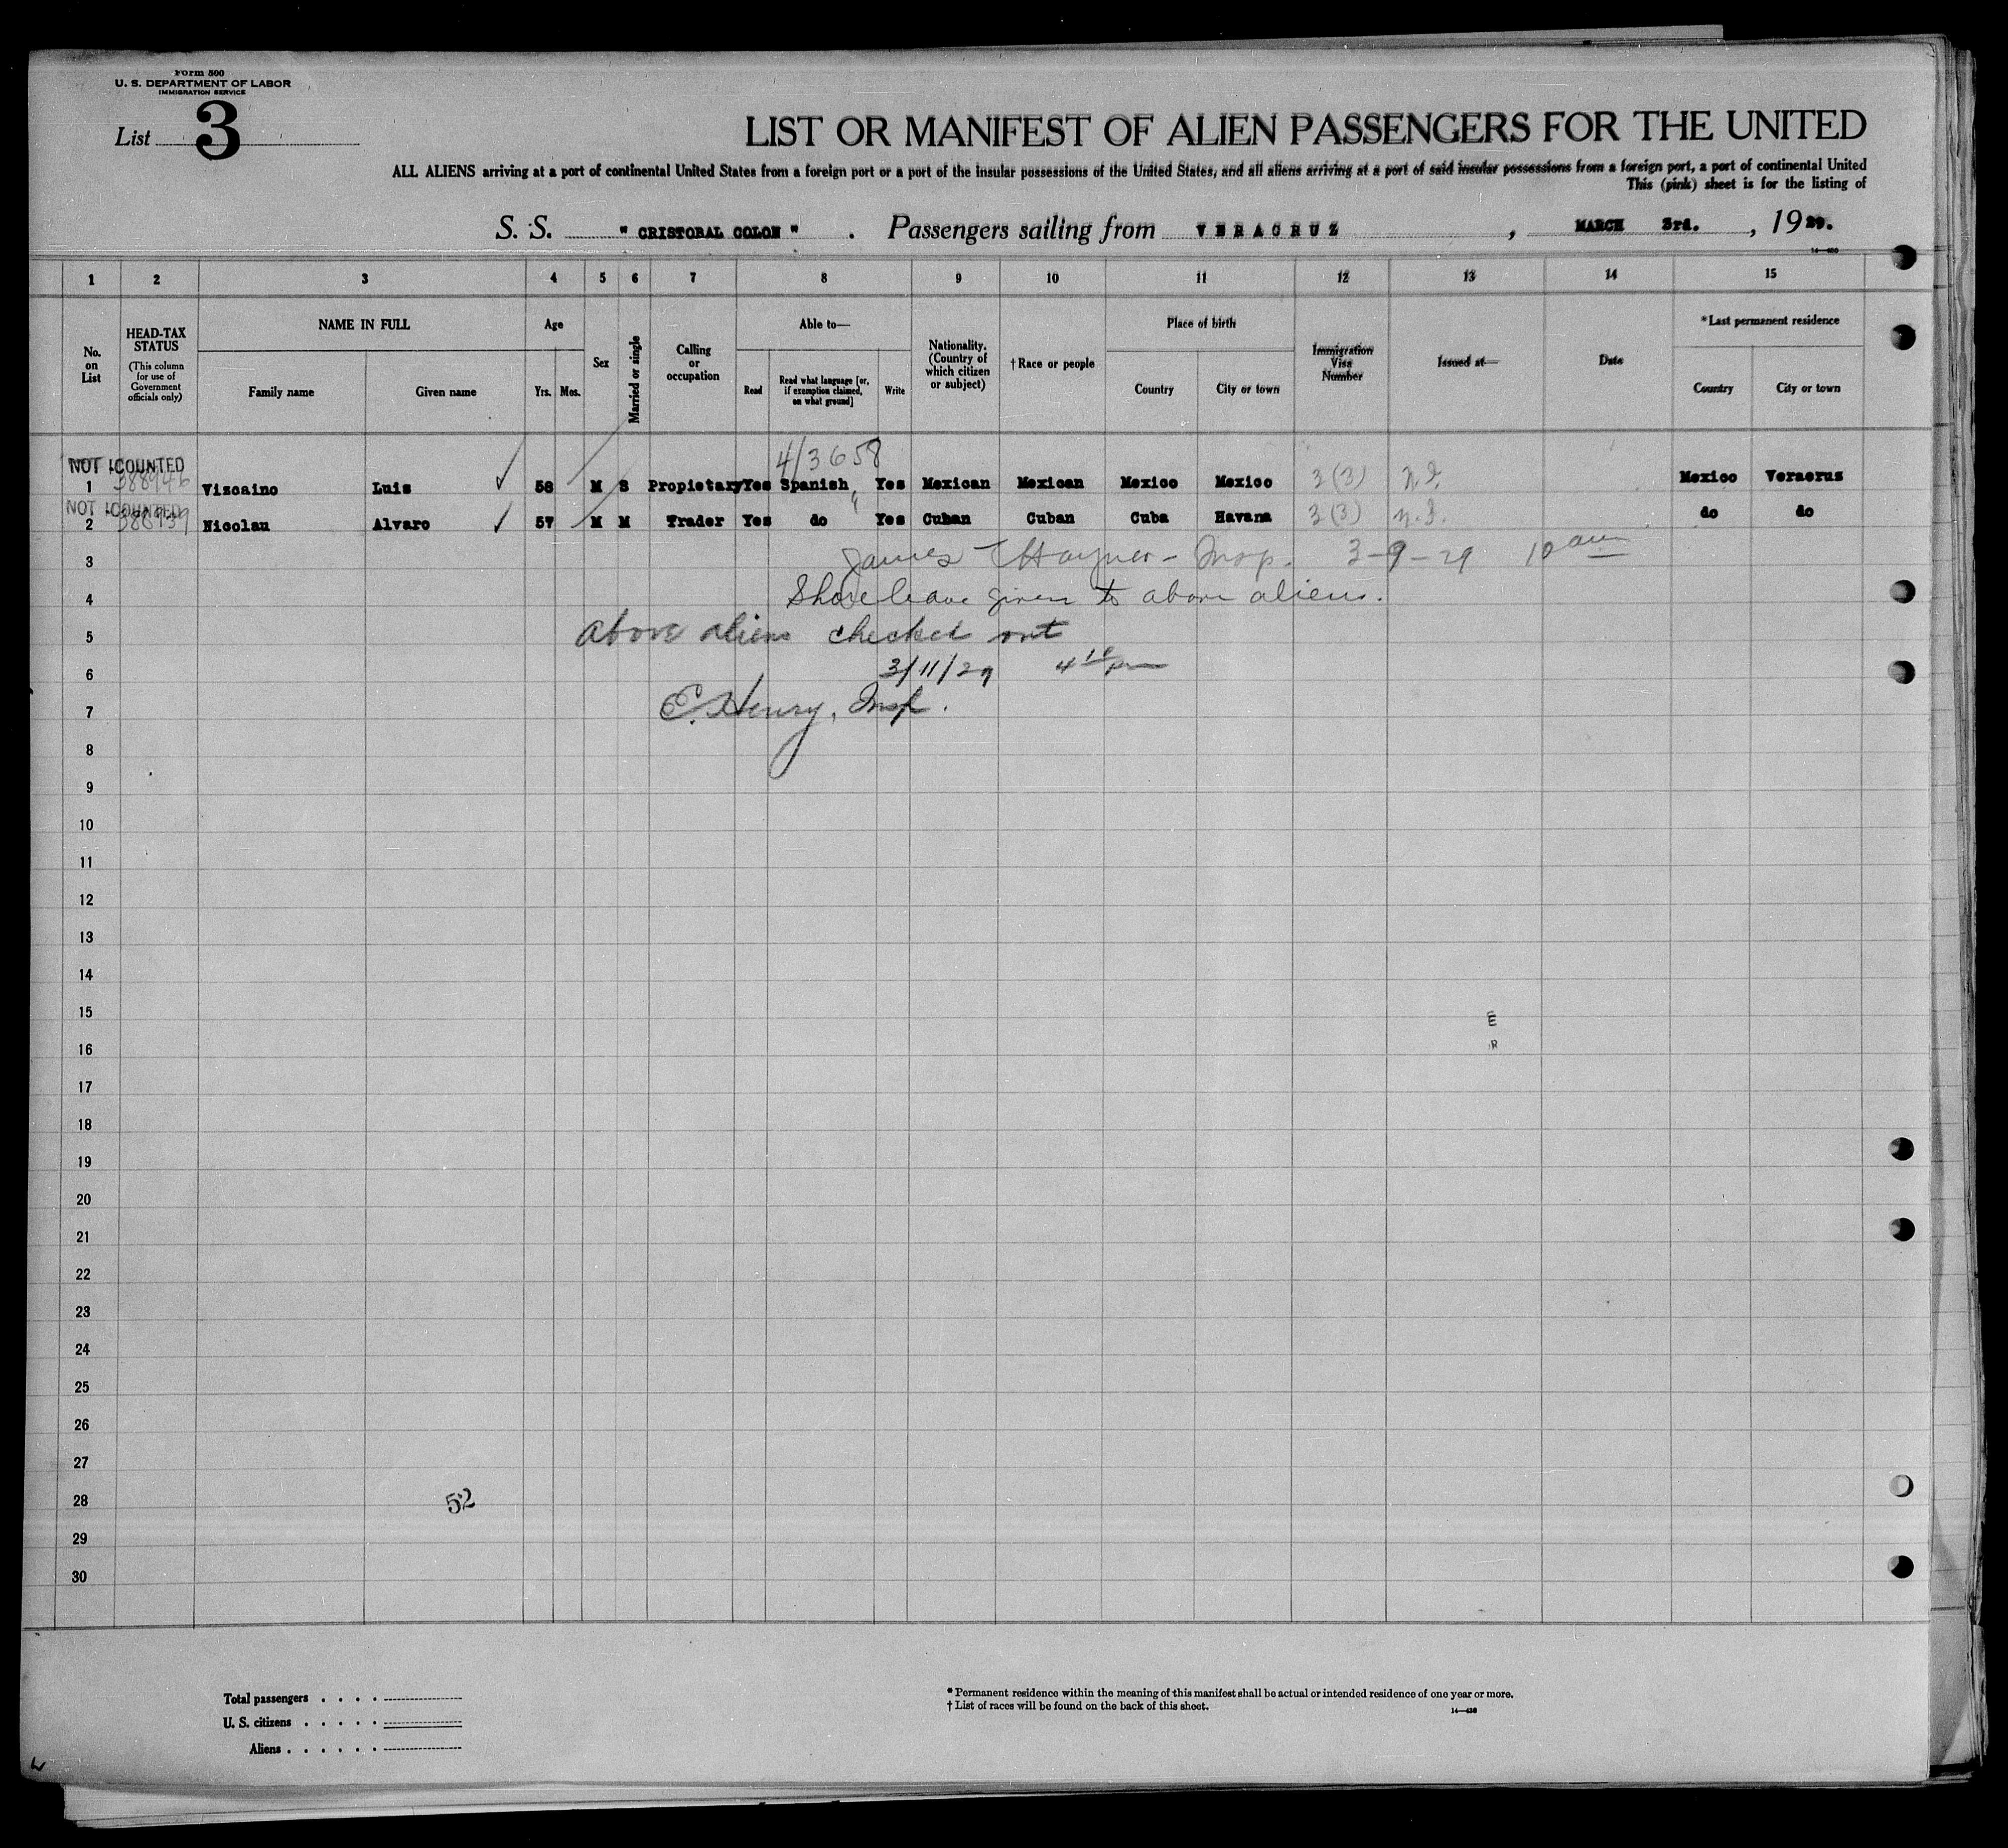 Form 500
U. S. DEPARTMENT OF LABOR
IMMIGRATION SERVICE
List 3
LIST OR MANIFEST OF ALIEN PASSENGERS FOR THE UNITED
ALL ALIENS arriving at a port of continental United States from a foreign port or a port of the insular possessions of the United States, and all aliens arriving at a port of said insular possessions from a foreign port, a port of continental United
This (pink) sheet is for the listing of
S. S. " CRISTOBAL COLON " . Passengers sailing from VERACRUZ , MARCH 3rd. , 1929.
1 2 3 4 5 6 7 8 9 10 11 12 13 14 15
No. on List
HEAD-TAX STATUS
(This column for use of Government officials only)
NAME IN FULL
Family name Given name
Age
Yrs. Mos.
Sex
Married or single
Calling or occupation
Able to—
Read Read what language [or, if exemption claimed, on what ground] Write
Nationality. (Country of which citizen or subject)
† Race or people
Place of birth
Country City or town
Immigration Visa Number
Issued at—
Date
*Last permanent residence
Country City or town
4/3658
NOT COUNTED
1 388946 Vizcaino Luis 58 M S Propietary Yes Spanish Yes Mexican Mexican Mexico Mexico 3(3) N.I. Mexico Veracruz
NOT COUNTED
2 Nicolau Alvaro 57 M M Trader Yes do Yes Cuban Cuban Cuba Havana 3(3) N.I. do do
3 James Insp. 3-9-29 10 am
4 Shore leave given to above aliens.
5 Above aliens checked out
6 3/11/29 4 10 pm
7 E. Henry, Insp.
8
9
10
11
12
13
14
15
E
16
R
17
18
19
20
21
22
23
24
25
26
27
28
52
29
30
Total passengers . . . .
U. S. citizens . . . . .
Aliens . . . . . .
* Permanent residence within the meaning of this manifest shall be actual or intended residence of one year or more.
† List of races will be found on the back of this sheet.